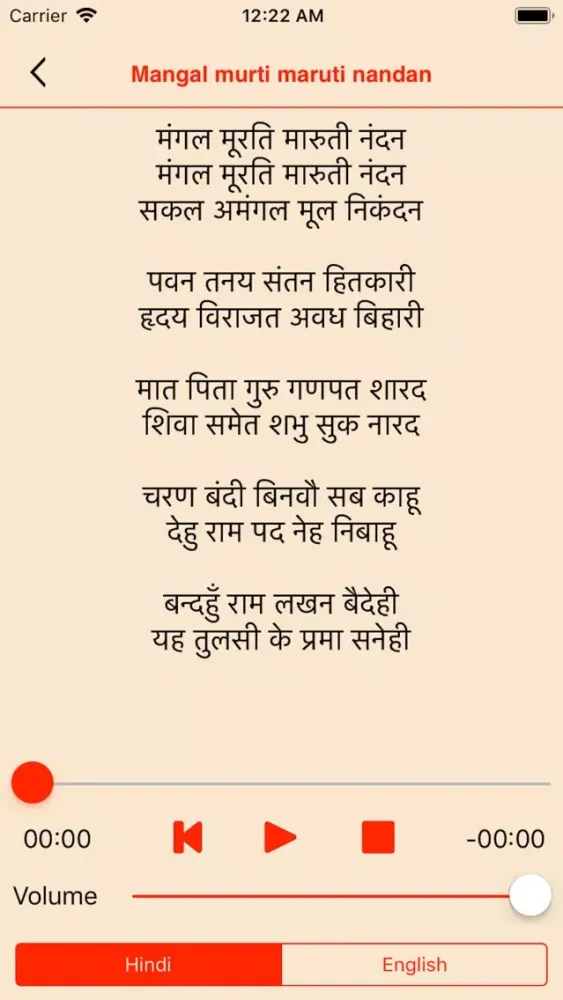 Carrier
12:22 AM
Mangal murti maruti nandan
मंगल मूरति मारुती नंदन
मंगल मूरति मारुती नंदन
सकल अमंगल मूल निकंदन
पवन तनय संतन हितकारी
हृदय विराजत अवध बिहारी
मात पिता गुरु गणपत शारद
शिवा समेत शभु सुक नारद
चरण बंदी बिनवौ सब काहू
देहु राम पद नेह निबाहू
बन्दहुँ राम लखन बैदेही
यह तुलसी के प्रमा सनेही
00:00
-00:00
Volume
Hindi
English